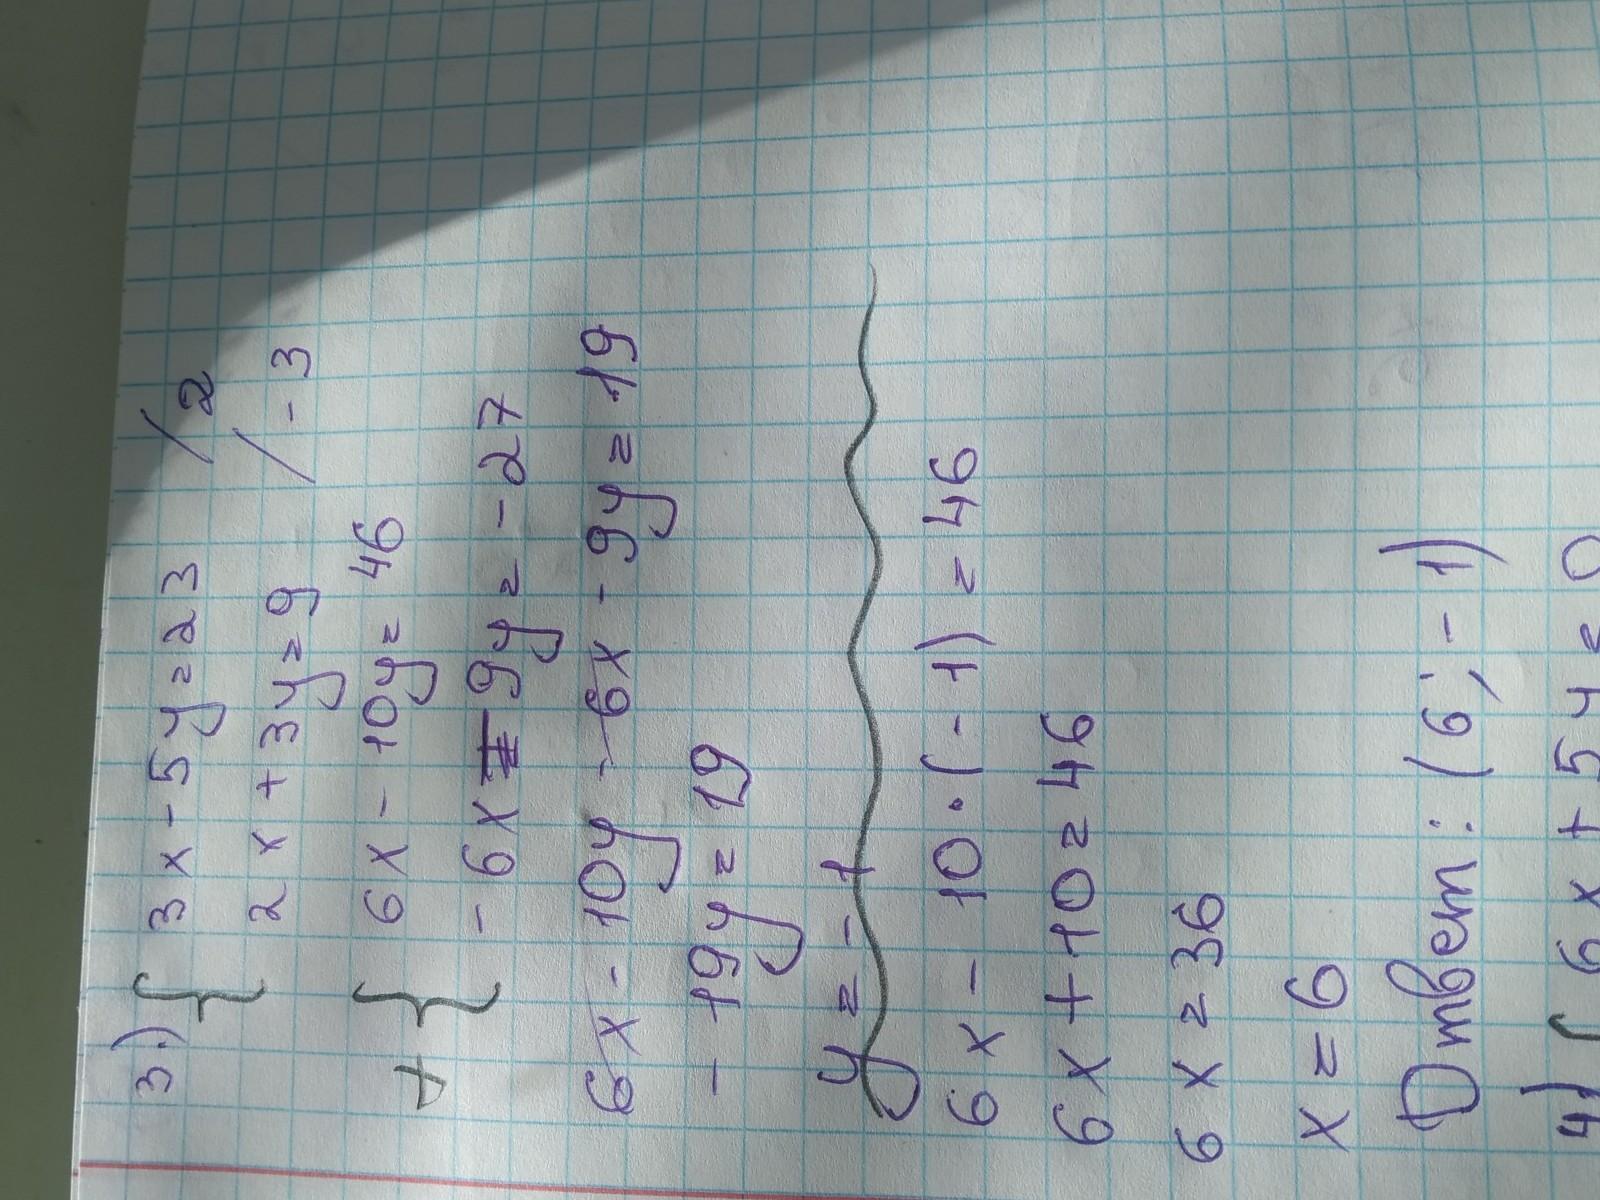 3.) { 3x - 5y = 23 / 2
2x + 3y = 9 / -3
+ { 6x - 10y = 46
- 6x - 9y = -27
6x - 10y - 6x - 9y = 19
- 19y = 19
y = -1
6x - 10 · (-1) = 46
6x + 10 = 46
6x = 36
x = 6
Ответ: (6; -1)
4) { 6x + 5y = 0